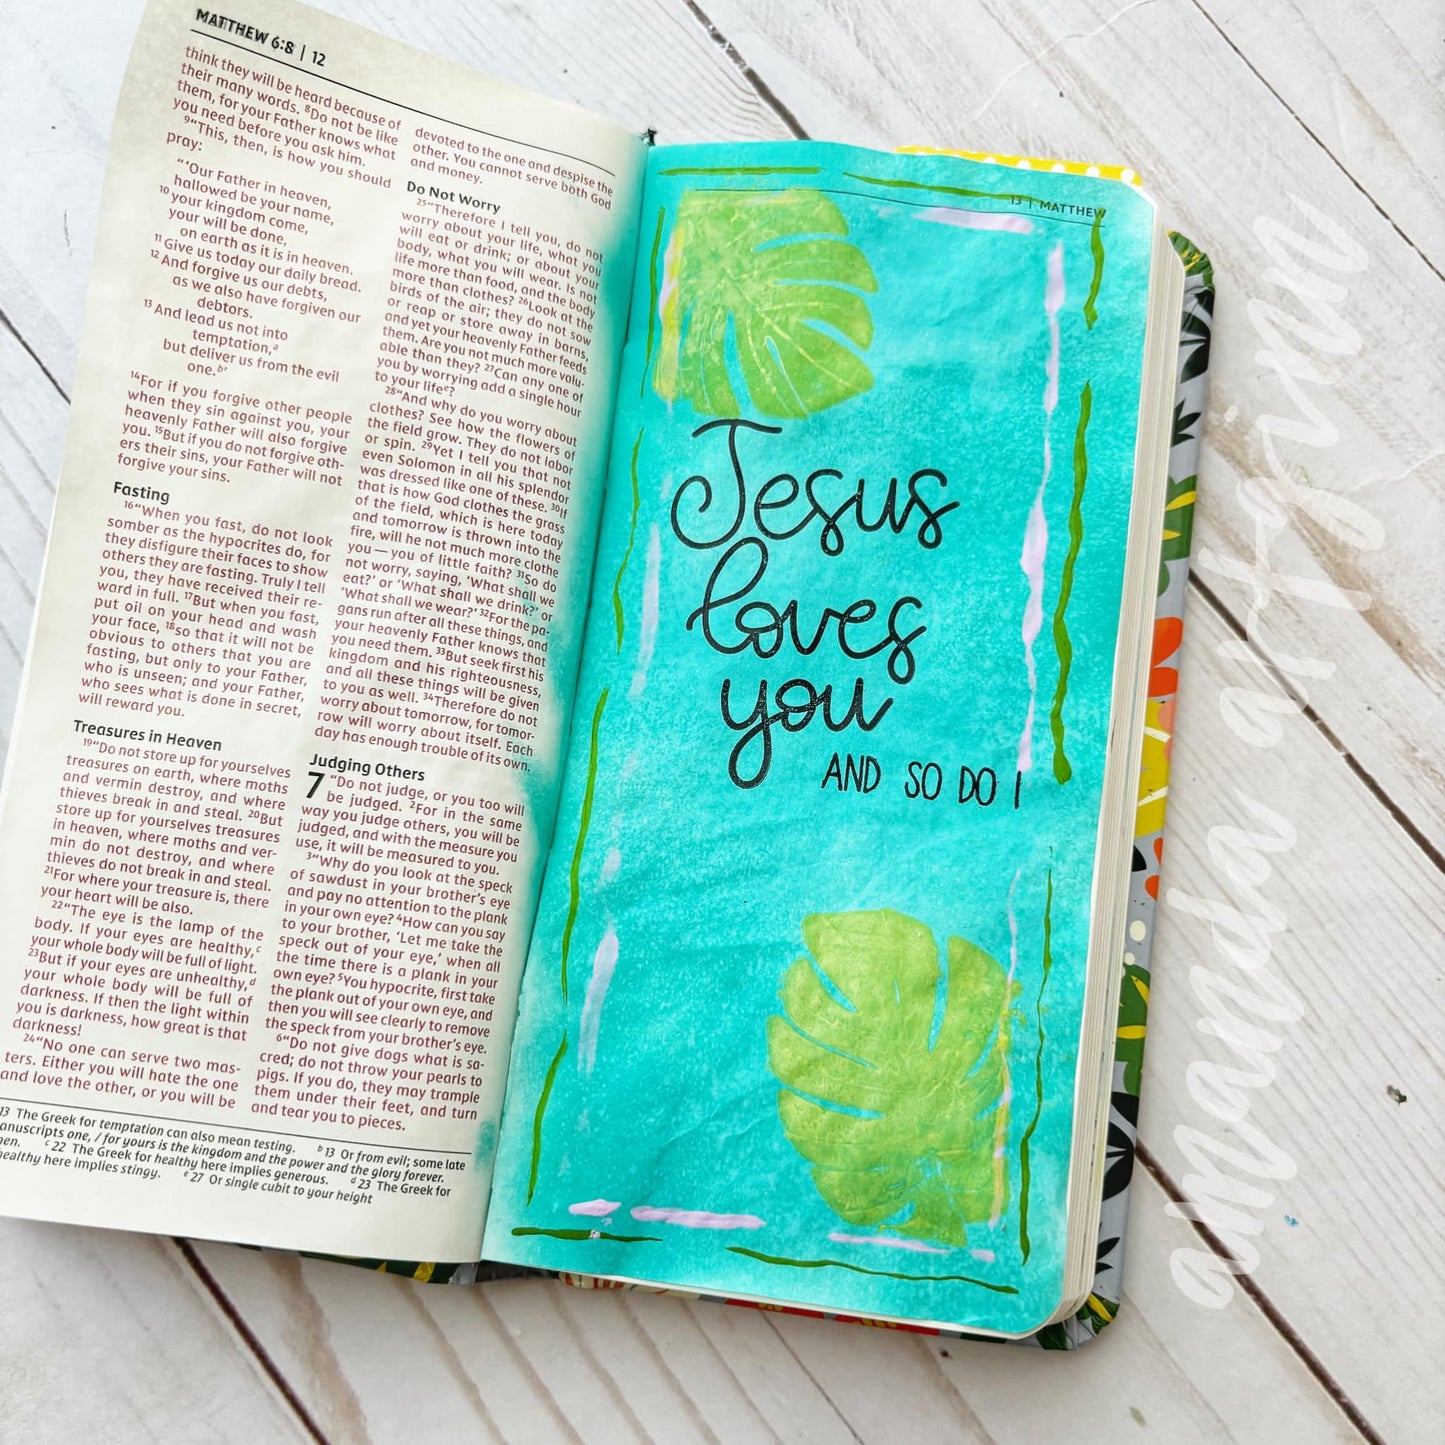 MATTHEW 6:8 | 12
think they will be heard because of
their many words. 8Do not be like
them, for your Father knows what
you need before you ask him.
9“This, then, is how you should
pray:
“‘Our Father in heaven,
hallowed be your name,
10 your kingdom come,
your will be done,
on earth as it is in heaven.
11 Give us today our daily bread.
12 And forgive us our debts,
as we also have forgiven our
debtors.
13 And lead us not into
temptation,a
but deliver us from the evil
one.b’
14For if you forgive other people
when they sin against you, your
heavenly Father will also forgive
you. 15But if you do not forgive oth-
ers their sins, your Father will not
forgive your sins.
Fasting
16“When you fast, do not look
somber as the hypocrites do, for
they disfigure their faces to show
others they are fasting. Truly I tell
you, they have received their re-
ward in full. 17But when you fast,
put oil on your head and wash
your face, 18so that it will not be
obvious to others that you are
fasting, but only to your Father,
who is unseen; and your Father,
who sees what is done in secret,
will reward you.
Treasures in Heaven
19“Do not store up for yourselves
treasures on earth, where moths
and vermin destroy, and where
thieves break in and steal. 20But
store up for yourselves treasures
in heaven, where moths and ver-
min do not destroy, and where
thieves do not break in and steal.
21For where your treasure is, there
your heart will be also.
22“The eye is the lamp of the
body. If your eyes are healthy,c
your whole body will be full of light.
23But if your eyes are unhealthy,d
your whole body will be full of
darkness. If then the light within
you is darkness, how great is that
darkness!
24“No one can serve two mas-
ters. Either you will hate the one
and love the other, or you will be
devoted to the one and despise the
other. You cannot serve both God
and money.
Do Not Worry
25“Therefore I tell you, do not
worry about your life, what you
will eat or drink; or about your
body, what you will wear. Is not
life more than food, and the body
more than clothes? 26Look at the
birds of the air; they do not sow
or reap or store away in barns,
and yet your heavenly Father feeds
them. Are you not much more valu-
able than they? 27Can any one of
you by worrying add a single hour
to your lifee?
28“And why do you worry about
clothes? See how the flowers of
the field grow. They do not labor
or spin. 29Yet I tell you that not
even Solomon in all his splendor
was dressed like one of these. 30If
that is how God clothes the grass
of the field, which is here today
and tomorrow is thrown into the
fire, will he not much more clothe
you — you of little faith? 31So do
not worry, saying, ‘What shall we
eat?’ or ‘What shall we drink?’ or
‘What shall we wear?’ 32For the pa-
gans run after all these things, and
your heavenly Father knows that
you need them. 33But seek first his
kingdom and his righteousness,
and all these things will be given
to you as well. 34Therefore do not
worry about tomorrow, for tomor-
row will worry about itself. Each
day has enough trouble of its own.
Judging Others
7 “Do not judge, or you too will
be judged. 2For in the same
way you judge others, you will be
judged, and with the measure you
use, it will be measured to you.
3“Why do you look at the speck
of sawdust in your brother’s eye
and pay no attention to the plank
in your own eye? 4How can you say
to your brother, ‘Let me take the
speck out of your eye,’ when all
the time there is a plank in your
own eye? 5You hypocrite, first take
the plank out of your own eye, and
then you will see clearly to remove
the speck from your brother’s eye.
6“Do not give dogs what is sa-
cred; do not throw your pearls to
pigs. If you do, they may trample
them under their feet, and turn
and tear you to pieces.
13 The Greek for temptation can also mean testing. b 13 Or from evil; some late
anuscripts one, / for yours is the kingdom and the power and the glory forever.
men. c 22 The Greek for healthy here implies generous. d 23 The Greek for
healthy here implies stingy. e 27 Or single cubit to your height
13 | MATTHEW
Jesus
loves
you
AND SO DO I